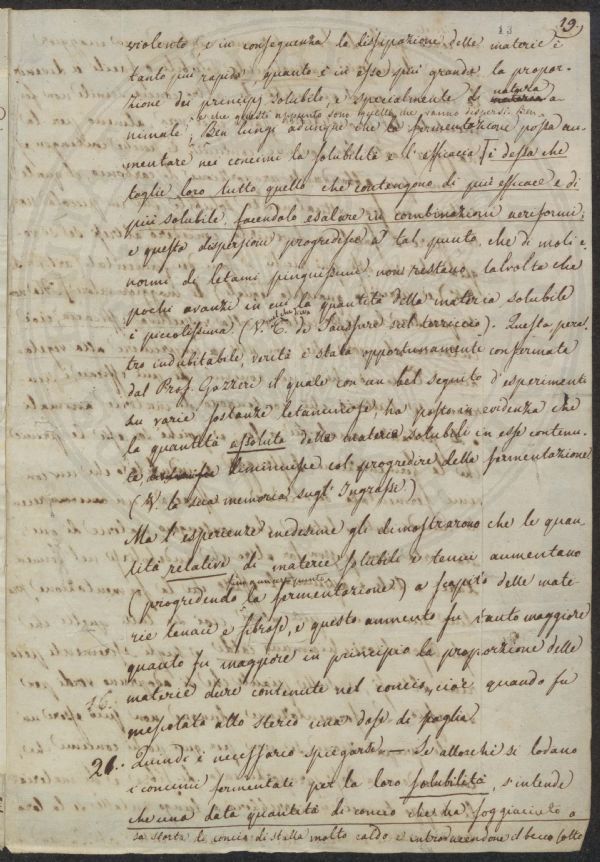 13 19.
violento e in conseguenza la dissipazione delle materie è
tanto più rapida quanto è in esse più grande la propor-
zione dei principj solubili, e specialmente di natura a-
nimale; e che questi appunto sono quelle che vanno dispersi
Ben lungi adunque che la fermentazione possa au-
mentare nei concimi la solubilità e l'efficacia è dessa che
toglie loro tutto quello che contengono di più efficace e di
più solubile, facendolo esalare in combinazioni aeriformi;
e questa dispersione progredisce a tal punto, che di moli e-
normi di letami pinguissimi non restano talvolta che
pochi avanzi in cui la quantità della materia solubile
è piccolissima (V. T. de Saussure sul terriccio). Questa pera-
tro indubitabile verità è stata opportunamente confermata
dal Prof. Gazzeri il quale con un bel seguito d'esperimenti
su varie sostanze letaminose, ha posto in evidenza che
la quantità assoluta della materia solubili in esse contenu-
te diminuisce col progredire della fermentazione
(V. la sua memoria sugl'Ingrassi.)
Ma l'esperienze medesime gli dimostrarono che le quan-
tità relative di materie solubili e tenui aumentano
fino a un certo punto
(progredendo la fermentazione) a scapito delle mate-
rie tenaci e fibrose, e questo aumento fu tanto maggiore
quanto fu maggiore in principio la proporzione delle
materie dure contenute nel concio, cioè quando fu
mescolata allo sterco una dose di paglia.
16.
21. Quindi è necessario spiegarsi — Se allorchè si lodano
i concimi fermentati per la loro solubilità, s'intende
che una data quantità di concio che ha soggiaciuto a
sa storta di concio di stalla molto caldo e introducendone il becco sotto